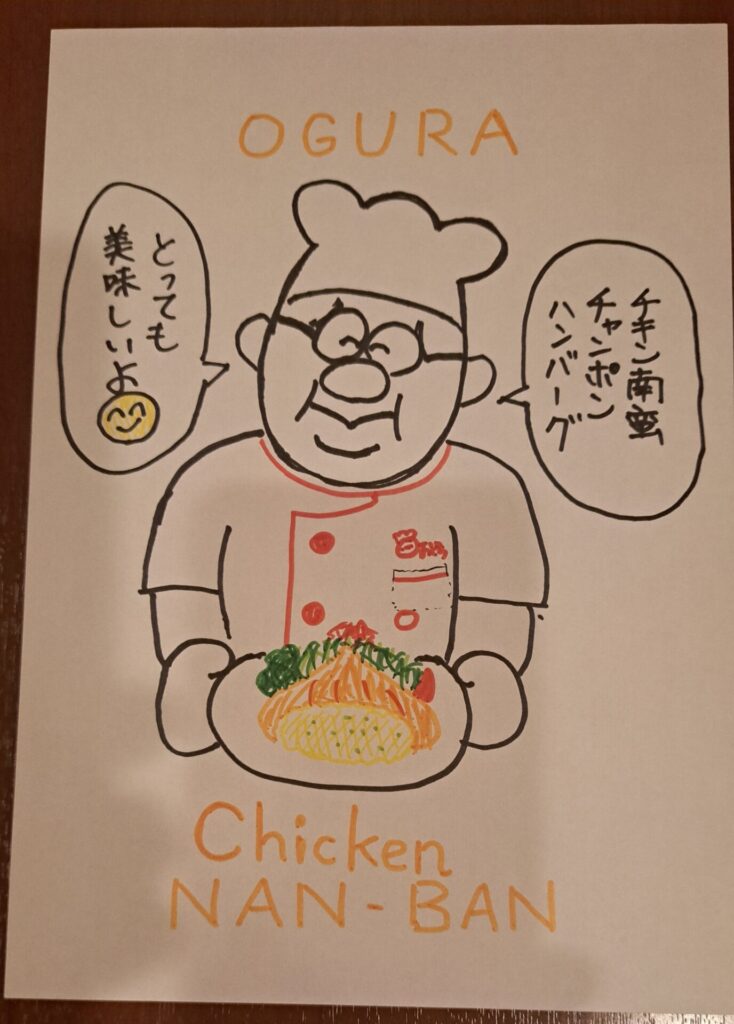 OGURA
チキン南蛮
チャンポン
ハンバーグ
とっても
美味しいよ
Chicken
NAN-BAN